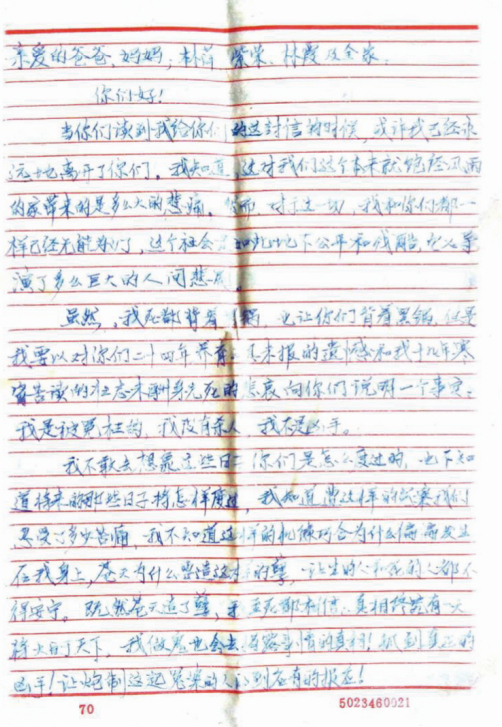 亲爱的爸爸、妈妈,荣、林霞及全家
你们好!
当你们读到我给你们的这封信的时候,或许我已经永
远地离开了你们。我知道,这对我们这个本来就饱经风雨
的家带来的是多么大的悲痛。然而,对于这一切,我和你们都一
样已经无能为力,这个社会不公平和残酷,导
演了多么巨大的人间悲
虽然,我死都将背着,也让你们背着黑锅,但是
我要以对你们二十四年养育未报的遗憾和我十九年寒
窗苦读的壮志未酬身先死的悲哀向你们说明一个事实:
我是被冤枉的,我没有杀人,我不是凶手。
我不敢去想象这些日子你们是怎么度过的,也不知
道将来的那些日子将怎样度过,我知道遭这样的我们
忍受了多少苦痛,我不知道这样的机缘巧合为什么偏偏发生
在我身上,苍天为什么要造这样的孽,让生的人和死的人都不
得安宁。既然苍天造了孽,我至死都相信:真相终究有一天
将大白于天下,我做鬼也会去的真相!抓到真正的
凶手!让炮制这起冤案的人得到应有的报应!
70
5023460021